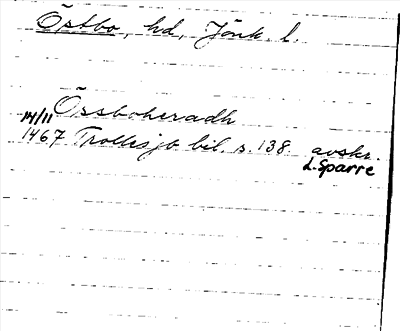 Östbo, hd, Jönk. l.
Örsboheradh
14/11
1467 Trollesjö bil. s. 138. avskr.
L. Sparre